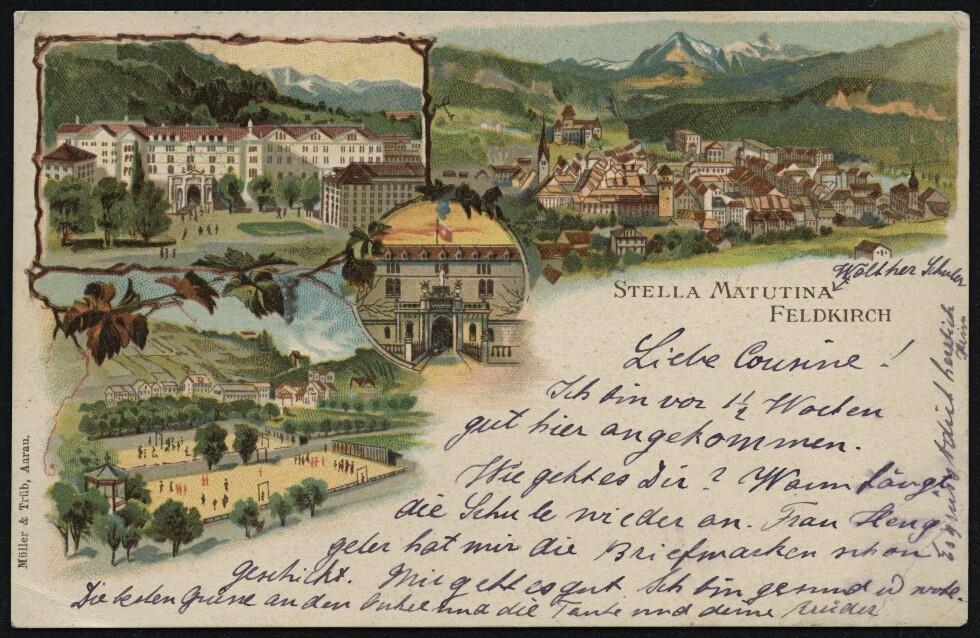 STELLA MATUTINA
FELDKIRCH
Walther Schuler
Liebe Cousine!
Ich bin vor 1½ Wochen
gut hier angekommen.
Wie geht es Dir? Wann fängt
die Schule wieder an. Frau Heng
geler hat mir die Briefmarken schon
geschikt. Mir geht es gut. Ich bin gesund u
Die besten Grüsse an den Onkel und die Tante und deine Brüder
Es grüsst dich herzlich
Müller & Trüb, Aarau.